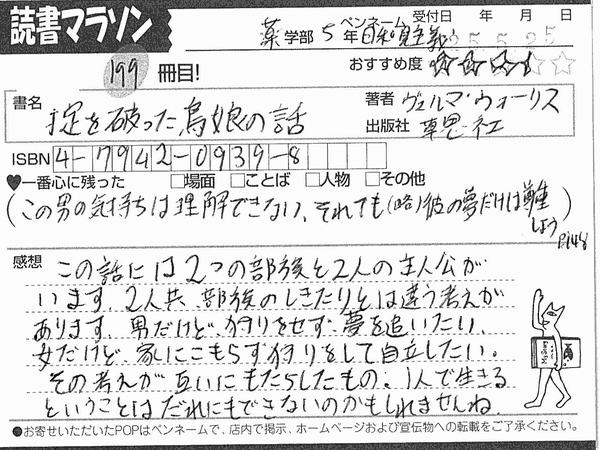 読書マラソン
薬学部 5年 ペンネーム 日和見主義 受付日 年 月 日
199 冊目!
おすすめ度
書名 掟を破った鳥娘の話
著者 ヴェルマ・ウォーリス
出版社 草思社
ISBN 4-7942-0939-8
♥一番心に残った □場面 □ことば □人物 □その他
(この男の気持ちは理解できない、それでも(略)彼の夢だけは尊重しよう) P.148
感想
この話には2つの部族と2人の主人公が
います。2人共、部族のしきたりとは違う考えが
あります。男だけど、狩りをせず夢を追いたい。
女だけど、家にこもらず狩りをして自立したい。
その考えが互いにもたらしたもの。1人で生きる
ということはだれにもできないのかもしれませんね。
●お寄せいただいたPOPはペンネームで、店内で掲示、ホームページおよび宣伝物への転載をご了承ください。